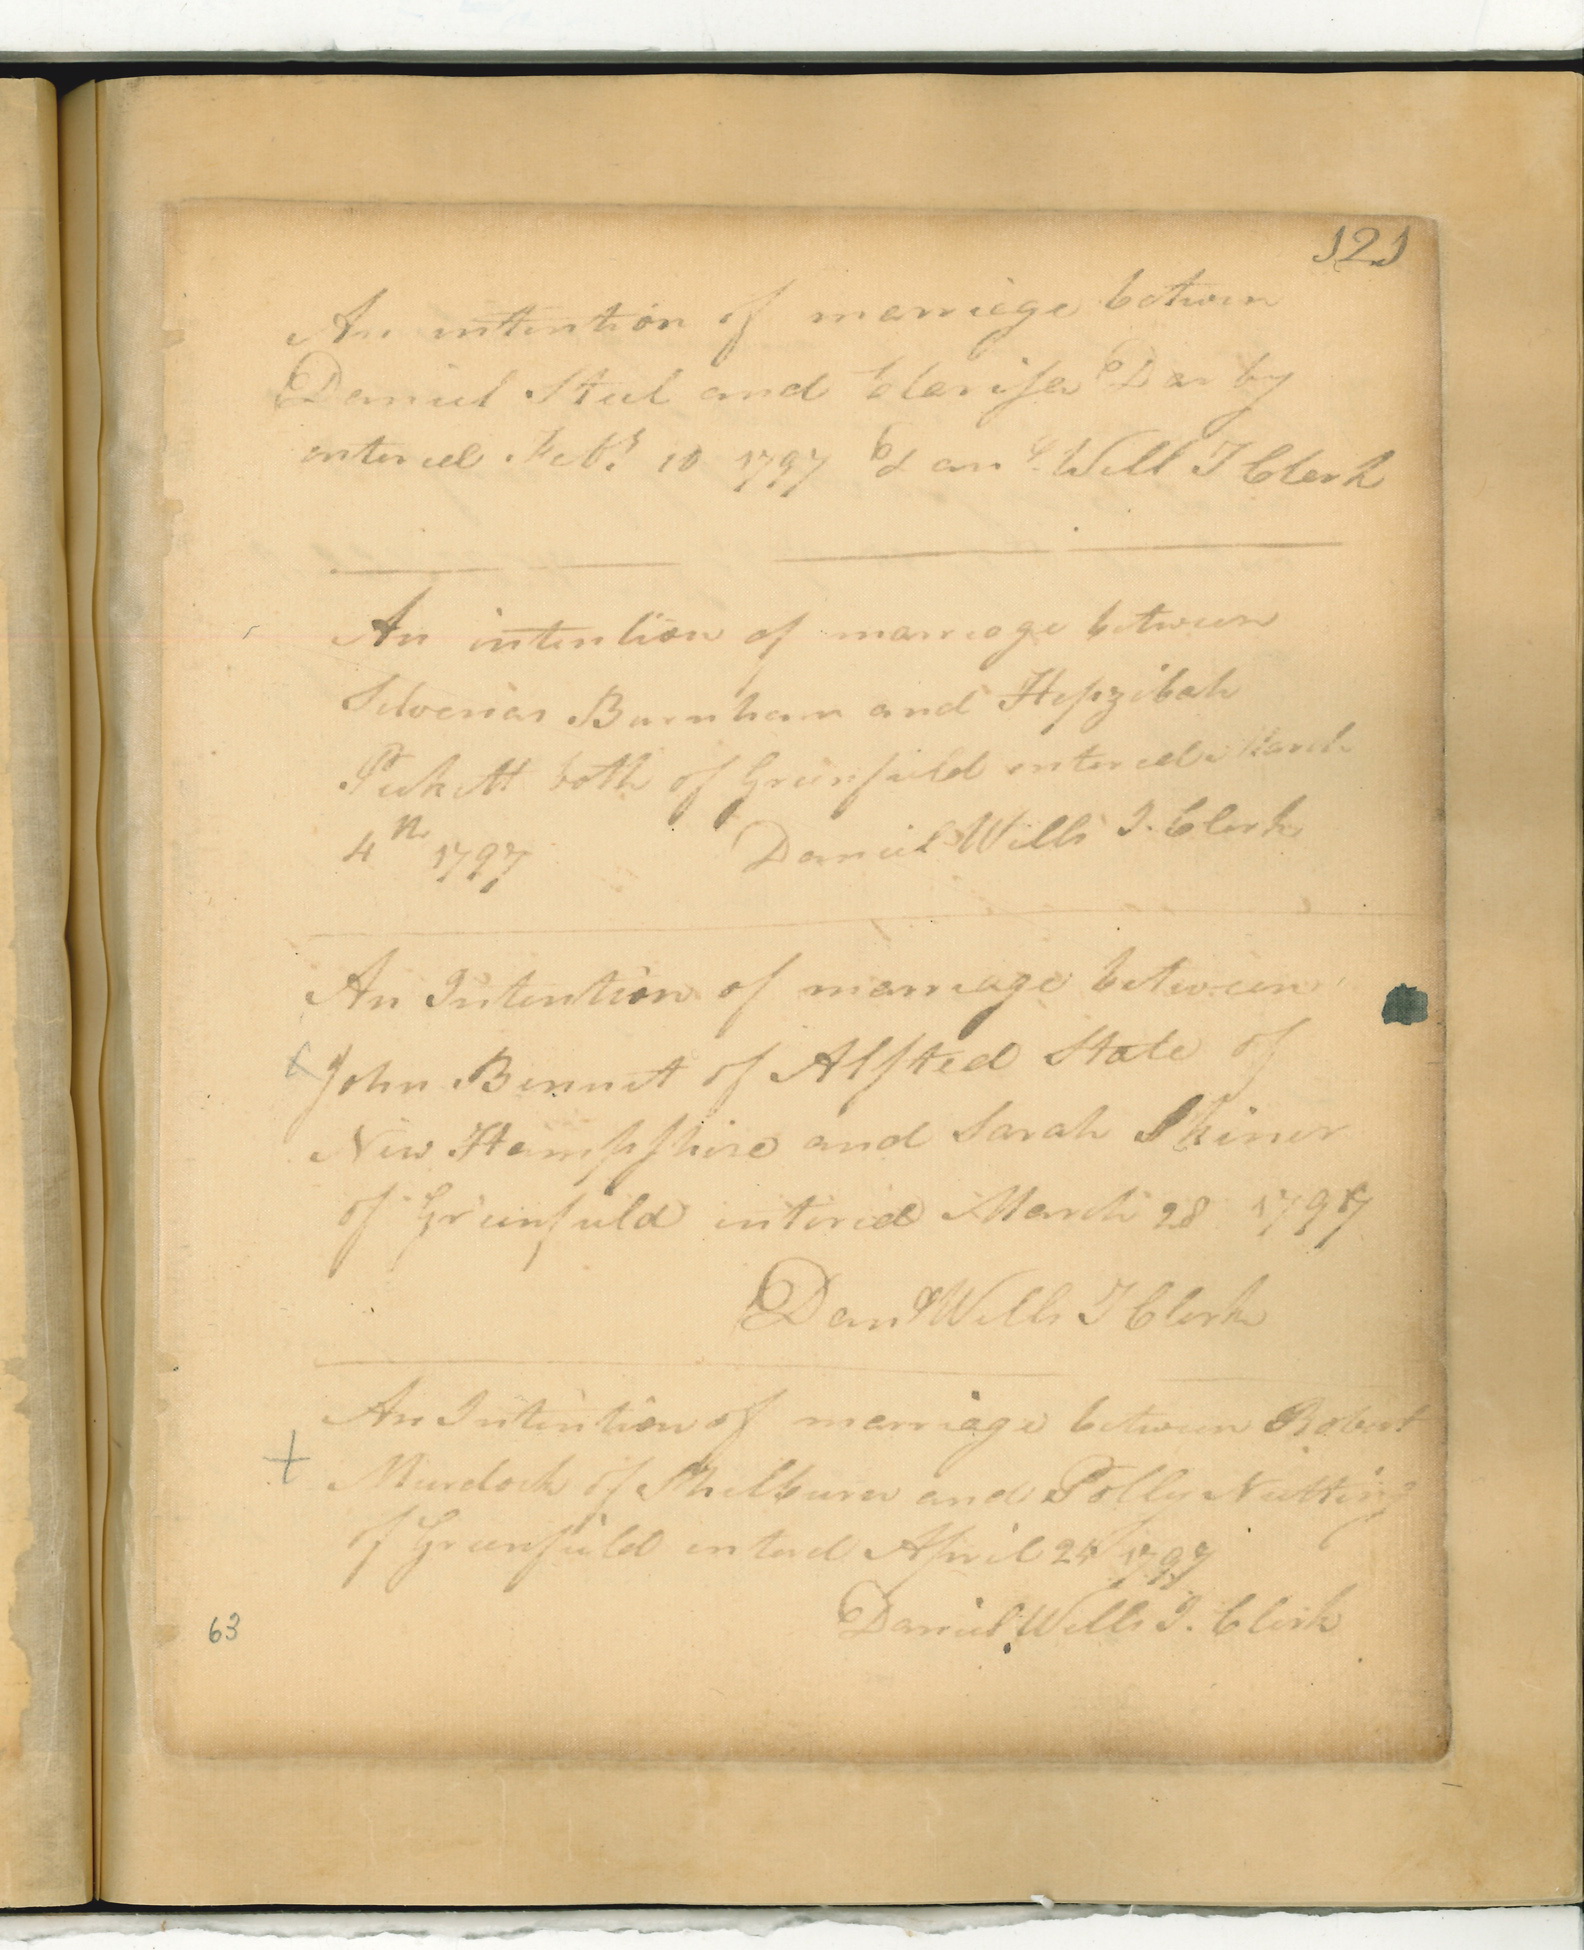 121
An intention of marriage between
Daniel Steel and Clarisa Darby
entered Feb.r 10 1797 Danl. Wells T Clerk
An intention of marriage between
Silvenias Burnham and Hepzibah
Pickett both of Greenfield entered March
4th 1797 Daniel Wells T. Clerk
An Intention of marriage between
John Bennet of Alsted State of
New Hampshire and Sarah Skiner
of Greenfield entered March 28 1797
Danl Wells T Clerk
An Intention of marriage between Robert
Murdock of Shelburn and Polly Nutting
of Greenfield entered April 24 1797
Daniel Wells T. Clerk
63